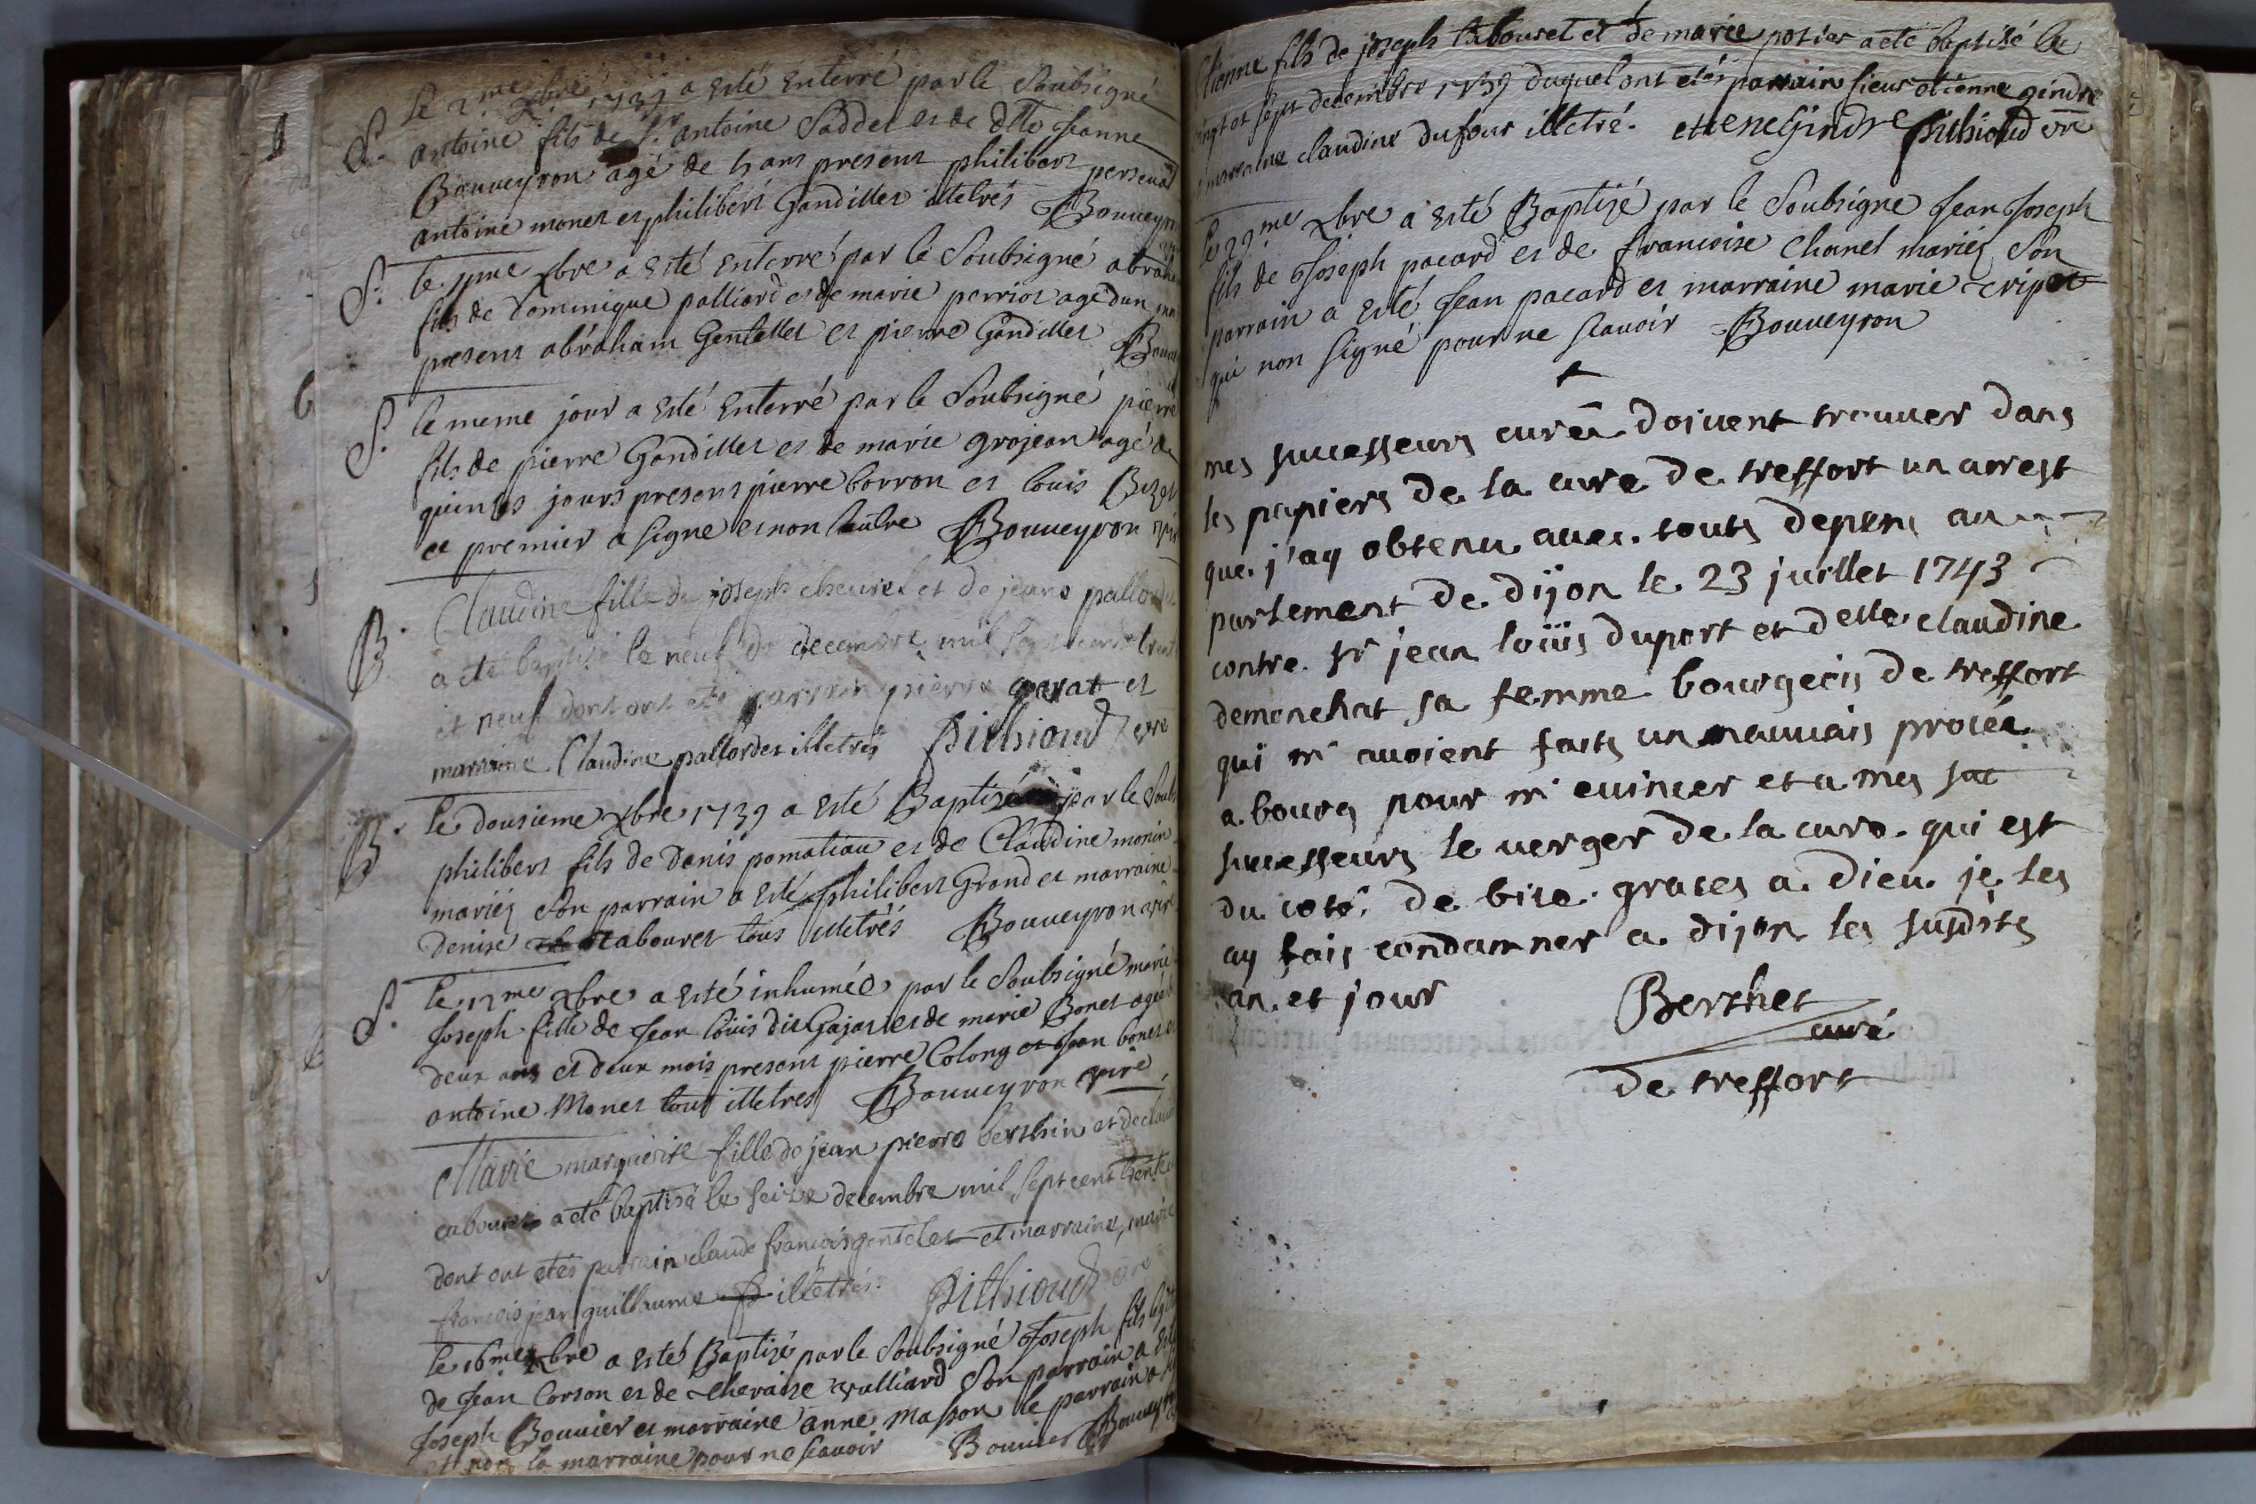 S. Le 2me Xbre 1739 a esté enterré par le Soubsigné
antoine fils de Sr antoine Saddet et de dlle Jeanne
Bouueyron agé de ans present philibert
antoine monet et philibert Gandillet illetrés Bouueyron
S. le Xbre a esté enterré par le Soubsigné abraham
fils de Dominique palliard et de marie perrier agé dun
present abraham Gentellet et pierre Gandillet
S. le meme jour a esté enterré par le Soubsigné pierre
fils de pierre Gandillet et de marie grojean agé de
quinze jours present pierre borron et louis
ce premier a signé et non lautre Bouueyron
B. Claudine fille de joseph cheurel et de jeane
a été baptisé le neuf de decembre mil sept cent trente
et neuf dont ont été parrain pierre et
marraine Claudine pallordet illetrés pithioud vre
B. le dousieme Xbre 1739 a esté Baptisé par le
philibert fils de Denis pomatiau et de Claudine monin
mariés son parrain a esté philibert Grand et marraine
Denise cabouret tous illetrés Bouueyron
S. le me Xbre a esté inhumée par le Soubsigné marie
Joseph fille de Jean loüis dit Gajat et de marie Bonet agée
deux ans et deux mois present pierre Colong et Jean bonet et
antoine Monet tout illetres Bouueyron vire
Marie marguerite fille de jean pierre berthin et de
cabouret a eté baptisé le seize decembre mil sept cent trente
dont ont etés parrain claude francois gentelet et marraine marie
francois jean guillaume illetrés. pithioud vre
le 16me Xbre a esté Baptisé par le Soubsigné Joseph fils
de Jean Corson et de vulliard Son parrain a esté
Joseph Bouuier et marraine anne Masson le parrain a
et non la marraine pour ne scauoir Bouuier Bouueyron
Etienne fils de joseph tabouret et de marie potier a eté baptisé le
vingt et sept decembre 1739 duquel ont etés parrain sieur etienne gindre
et marraine claudine dufour illetré. etiene Gindre pithioud vre
le 29me Xbre a esté Baptizé par le Soubsigne Jean Joseph
fils de Joseph pacard et de francoise Chanel mariés Son
parrain a esté Jean pacard et marraine marie
qui non signé pour ne scauoir Bouueyron
mes successeurs curés doiuent trouuer dans
les papiers de la cure de treffort un arrest
que j'ay obtenu auec touts depens au
parlement de dijon le 23 juillet 1743
contre Sr jean loüis duport et delle claudine
demonchat sa femme bourgeois de treffort
qui m' auoient faits un mauuais procés
a bourg pour m' euincer et a mes suc
successeurs le uerger de la cure qui est
du coté de bise. graces a Dieu je les
ay fais condamner a dijon les susdits
an et jour
Berthet
curé
de treffort